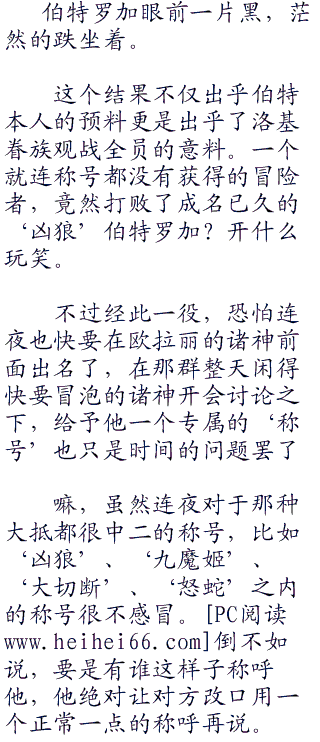 伯特罗加眼前一片黑，茫
然的跌坐着。
这个结果不仅出乎伯特
本人的预料更是出乎了洛基
眷族观战全员的意料。一个
就连称号都没有获得的冒险
者，竟然打败了成名已久的
‘凶狼’伯特罗加？开什么
玩笑。
不过经此一役，恐怕连
夜也快要在欧拉丽的诸神前
面出名了，在那群整天闲得
快要冒泡的诸神开会讨论之
下，给予他一个专属的‘称
号’也只是时间的问题罢了
嘛，虽然连夜对于那种
大抵都很中二的称号，比如
‘凶狼’、‘九魔姬’、
‘大切断’、‘怒蛇’之内
的称号很不感冒。[PC阅读
www.heihei66.com]倒不如
说，要是有谁这样子称呼
他，他绝对让对方改口用一
个正常一点的称呼再说。